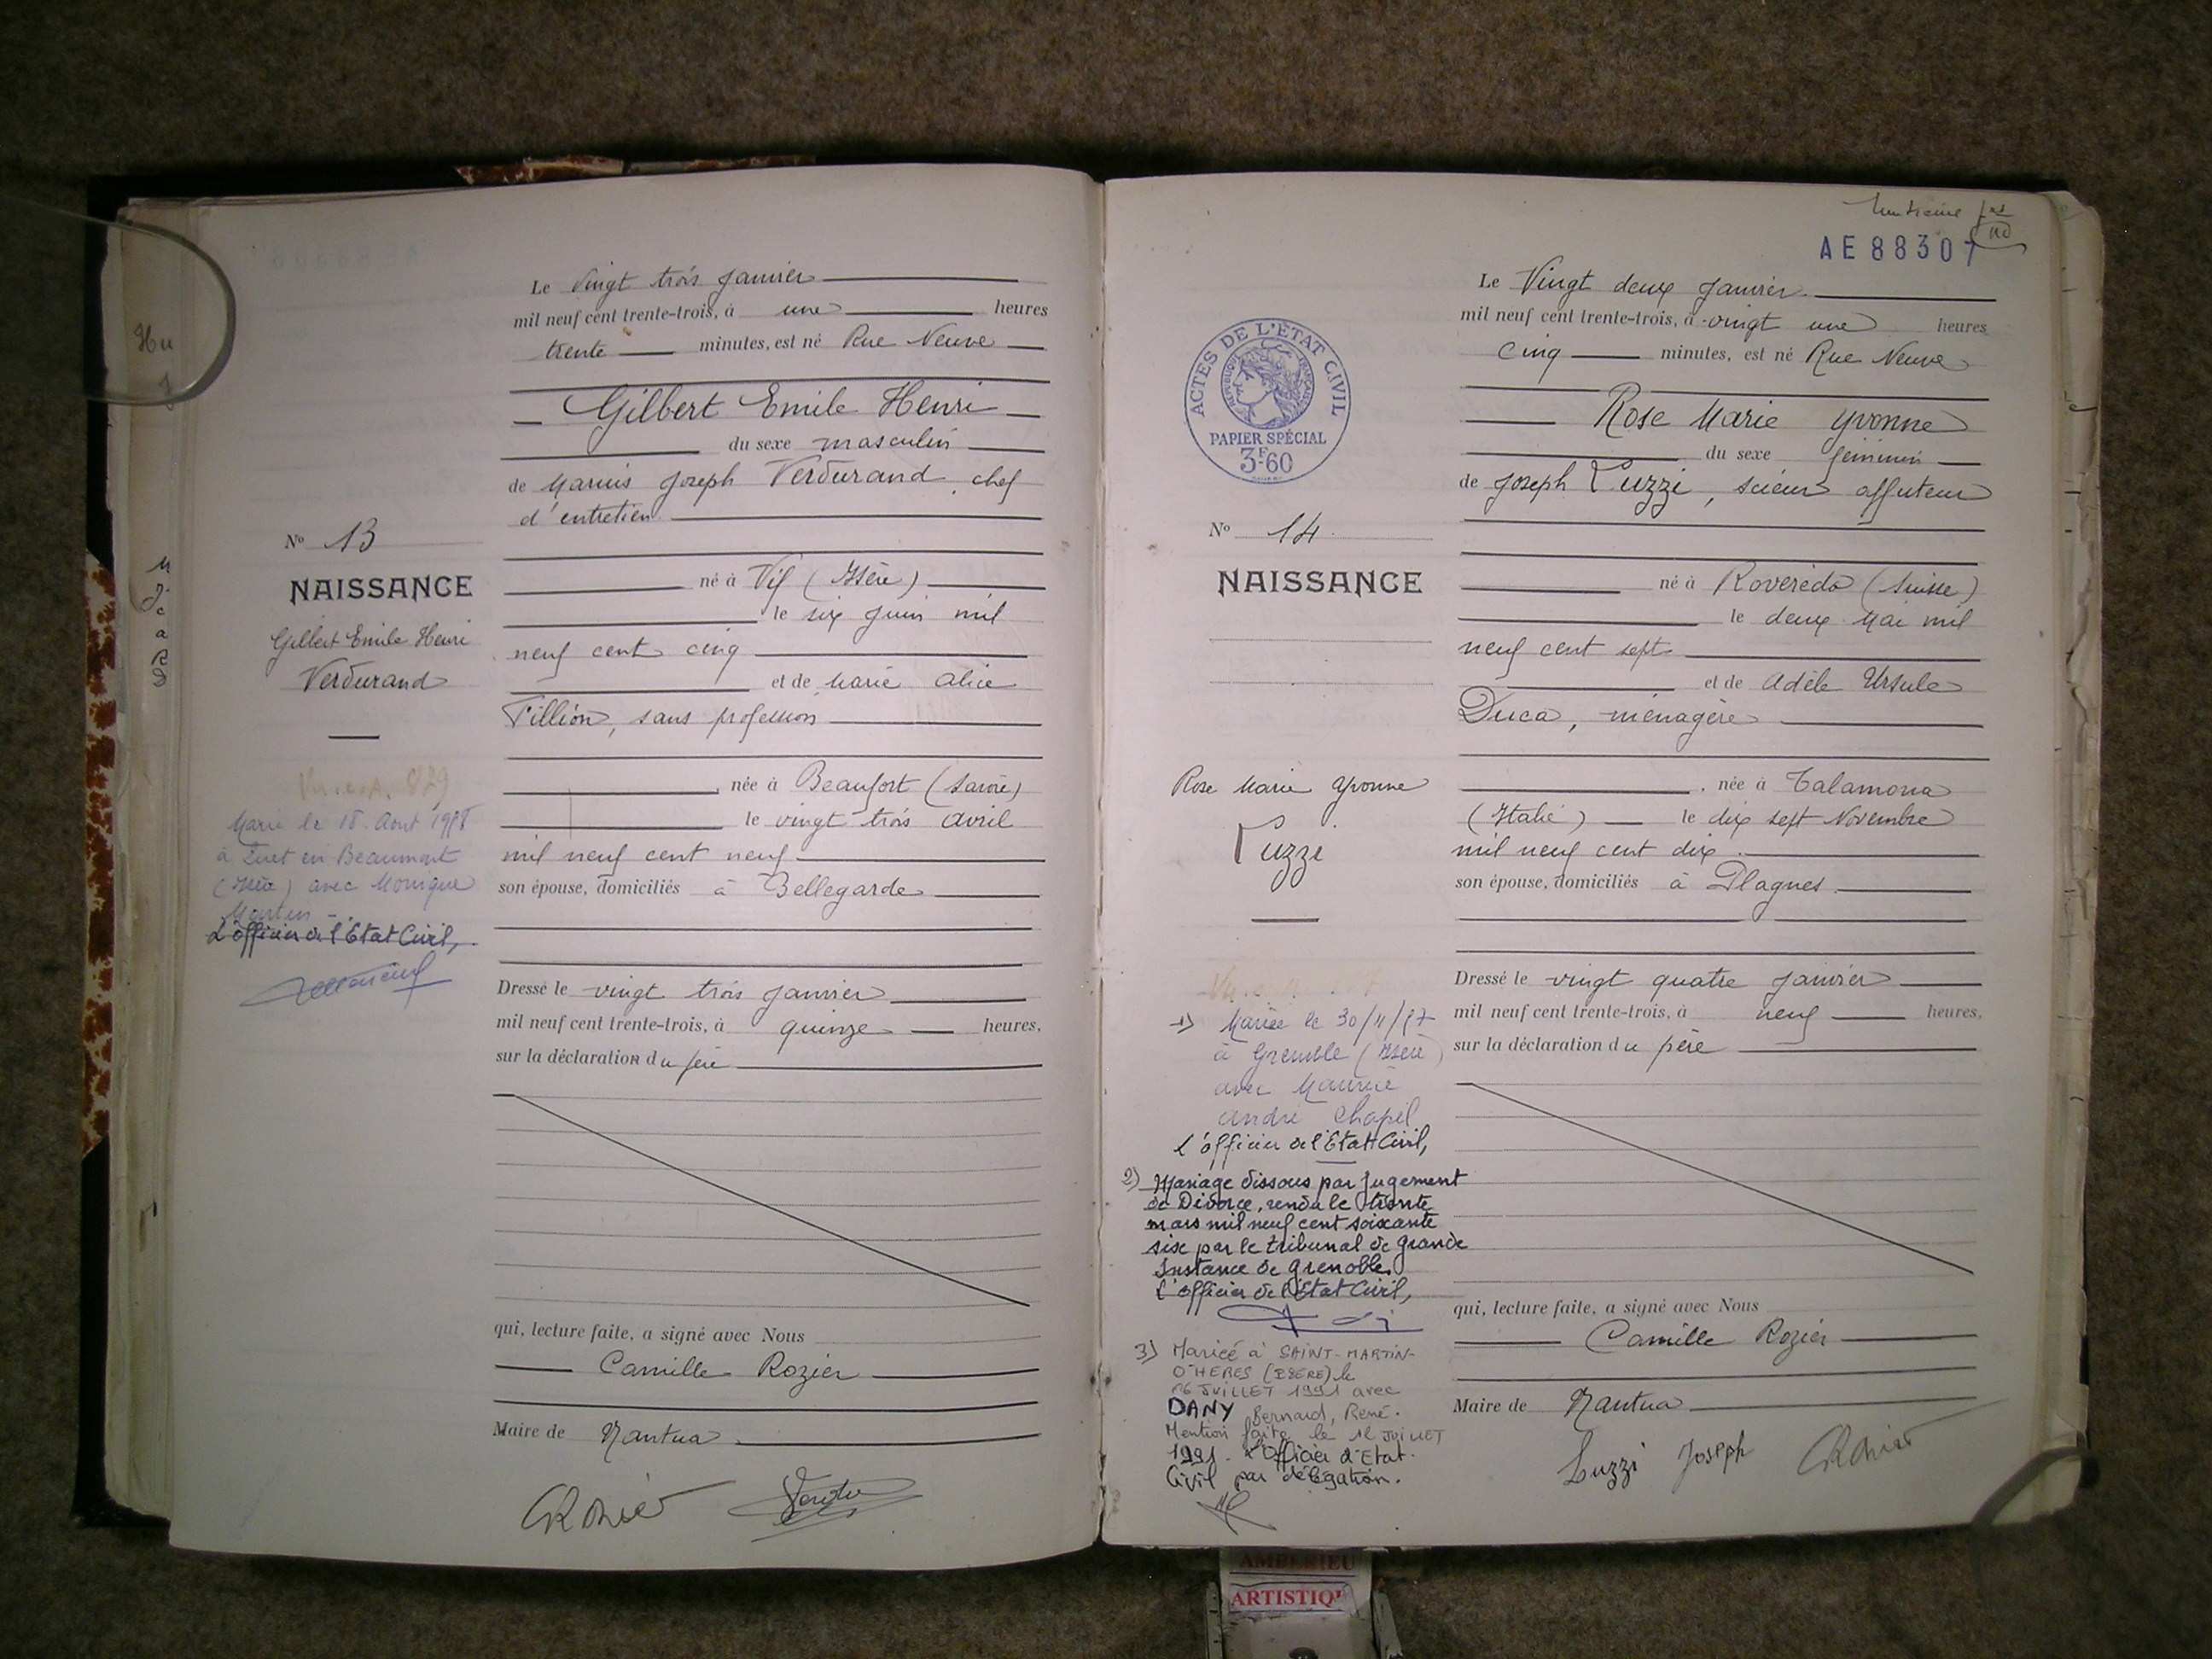 Le Vingt trois Janvier
mil neuf cent trente-trois, à une heures
trente minutes, est né Rue Neuve
Gilbert Emile Henri
du sexe masculin
de Marius Joseph Verdurand, chef
d'entretien
né à Vif (Isère)
le six Juin mil
neuf cent cinq
et de Marie Alice
Tillion, sans profession
née à Beaufort (Savoie)
le vingt trois Avril
mil neuf cent neuf
son épouse, domiciliés à Bellegarde
Dressé le vingt trois Janvier
mil neuf cent trente-trois, à quinze heures,
sur la déclaration du père
qui, lecture faite, a signé avec Nous
Camille Rozier
Maire de Nantua
CRozier
No 13
NAISSANCE
Gilbert Emile Henri
Verdurand
Marié le 18 Août
à en Beaumont
(Isère) avec Monique
Martin
L'officier de l'Etat Civil,
AE 88307
ACTES DE L'ETAT CIVIL
REPUBLIQUE FRANÇAISE
PAPIER SPÉCIAL
3F60
Le Vingt deux Janvier
mil neuf cent trente-trois, à vingt une heures
cinq minutes, est né Rue Neuve
Rose Marie Yvonne
du sexe féminin
de Joseph Luzzi, scieur affuteur
né à Roveredo (Suisse)
le deux Mai mil
neuf cent sept
et de Adèle Ursule
Duca, ménagère
née à Talamona
(Italie) le dix sept Novembre
mil neuf cent dix
son épouse, domiciliés à Plagnes
Dressé le vingt quatre Janvier
mil neuf cent trente-trois, à neuf heures,
sur la déclaration du père
qui, lecture faite, a signé avec Nous
Camille Rozier
Maire de Nantua
Luzzi Joseph CRozier
No 14
NAISSANCE
Rose Marie Yvonne
Luzzi
1) Mariée le
à Grenoble (Isère)
avec Maurice
André Chapel
L'officier de l'Etat Civil,
2) Mariage dissous par Jugement
de Divorce, rendu le trente
mars mil neuf cent soixante
six par le tribunal de Grande
Instance de Grenoble
L'officier de l'Etat Civil,
3) Mariée à SAINT-MARTIN-
D'HERES (ISERE) le
JUILLET 1991 avec
DANY Bernard, René.
Mention faite le JUILLET
1991. L'Officier d'Etat-
Civil par délégation.
AMBERIEU
ARTISTIQU